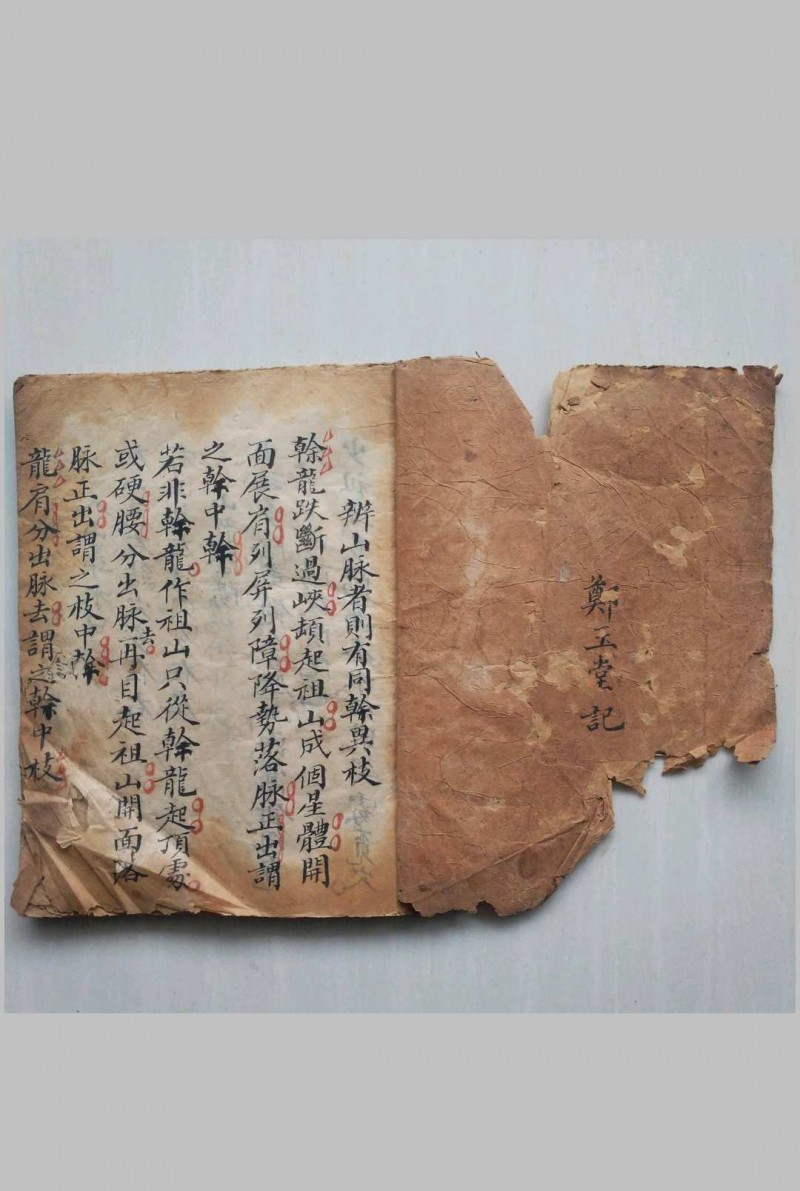 鄭玉堂記
辨山脉者則有同幹異枝
幹龍跌斷過峽頓起祖山成個星體開
面展肩列屏列障降勢落脉正出謂
之幹中幹
若非幹龍作祖山只從幹龍起頂處
或硬腰分出脉去再目起祖山開面落
脉正出謂之枝中幹
龍肩分出脉去謂之幹中枝